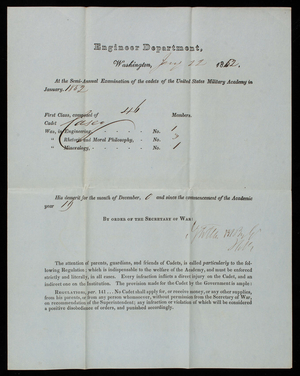 Engineer Department,
Washington, Jany 22 1852.
At the Semi-Annual Examination of the cadets of the United States Military Academy in
January. 1852
First Class, composed of 46 Members.
Cadet Casey
War, in Engineering, No. 1
" Rhetoric and Moral Philosophy, No.
" Mineralogy, No. 1
His demerit for the month of December, 0 and since the commencement of the Academic
year 19
By order of the Secretary of War:
The attention of parents, guardians, and friends of Cadets, is called particularly to the fol-
lowing Regulation, which is indispensable to the welfare of the Academy, and must be enforced
strictly and literally, in all cases. Every infraction inflicts a direct injury on the Cadet, and an
indirect one on the Institution. The provision made for the Cadet by the Government is ample:
Regulation, par. 141 ... No Cadet shall apply for, or receive money, or any other supplies,
from his parents, or from any person whomsoever, without permission from the Secretary of War,
on recommendation of the Superintendent; any infraction or violation of which will be considered
a positive disobedience of orders, and punished accordingly.